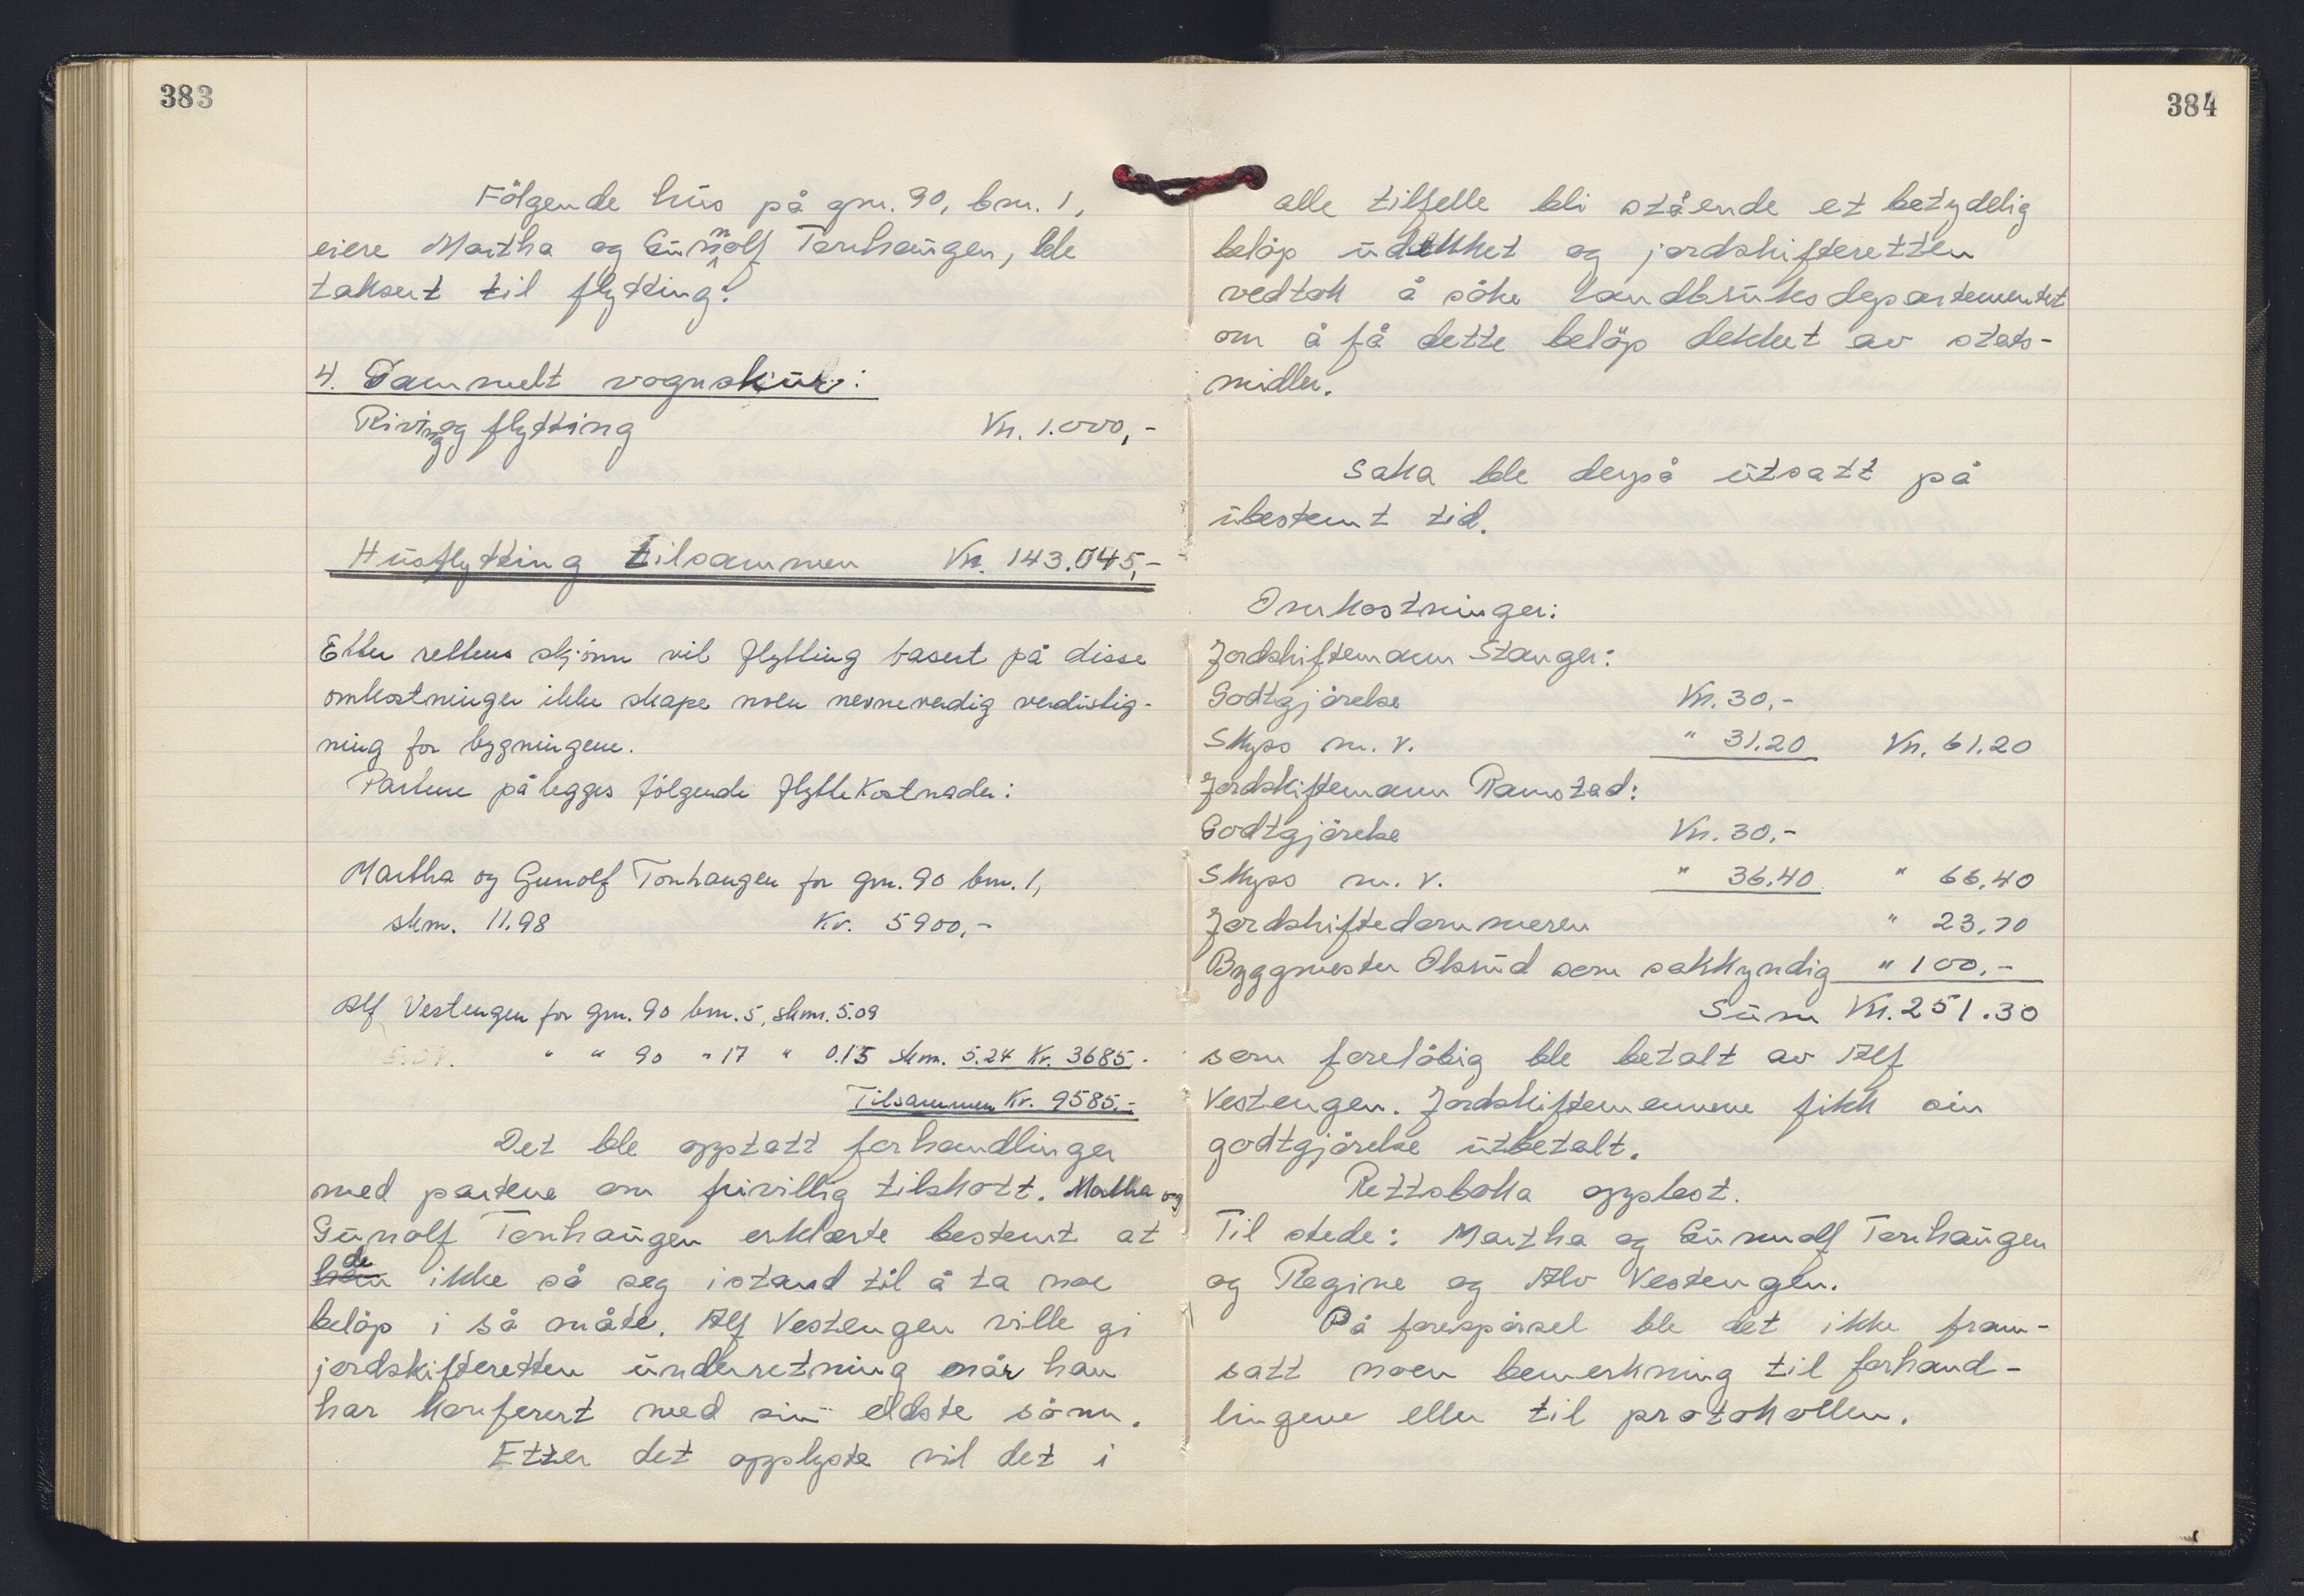 383
Følgende hus på gnr. 90, bnr. 1,
eiere Martha og Gunnolf Tonhaugen, ble
taksert til flytting:
4. Gammelt vognskur:
Riving og flytting Kr. 1.000,-
Husflytting tilsammen Kr. 143.045,-
Etter rettens skjønn vil flytting basert på disse
omkostninger ikke skape noen nevneverdig verdistig-
ning for bygningene.
Partene pålegges følgende flyttekostnader:
Martha og Gunolf Tonhaugen for gnr. 90 bnr. 1,
skm. 11.98 Kr. 5900,-
Alf Vestengen for gnr. 90 bnr. 5, skm. 5.09
" " 90 " 17 " 0.15 skm. 5.24 Kr. 3685.-
Tilsammen Kr. 9585.-
Det ble opptatt forhandlinger
med partene om frivillig tilskott. Martha og
Gunolf Tonhaugen erklærte bestemt at
han de ikke så seg istand til å ta noe
beløp i så måte. Alf Vestengen ville gi
jordskifteretten underretning når han
har konferert med sin eldste sønn.
Etter det opplyste vil det i
384
alle tilfelle bli stående et betydelig
beløp udekket og jordskifteretten
vedtok å søke Landbruksdepartementet
om å få dette beløp dekket av stats-
midler.
Saka ble derpå utsatt på
ubestemt tid.
Omkostninger:
Jordskiftemann Stanger:
Godtgjørelse Kr. 30,-
Skyss m. v. " 31.20 Kr. 61.20
Jordskiftemann Ramstad:
Godtgjørelse Kr. 30.-
Skyss m. v. " 36.40 " 66.40
Jordskiftedommeren " 23.70
Byggmester Olsrud som sakkyndig " 100.-
Sum Kr. 251.30
som foreløbig ble betalt av Alf
Vestengen. Jordskiftemennene fikk sin
godtgjørelse utbetalt.
Rettsboka opplest.
Til stede: Martha og Gunnolf Tonhaugen
og Regine og Alv Vestengen.
På forespørsel ble det ikke fram-
satt noen bemerkning til forhand-
lingene eller til protokollen.